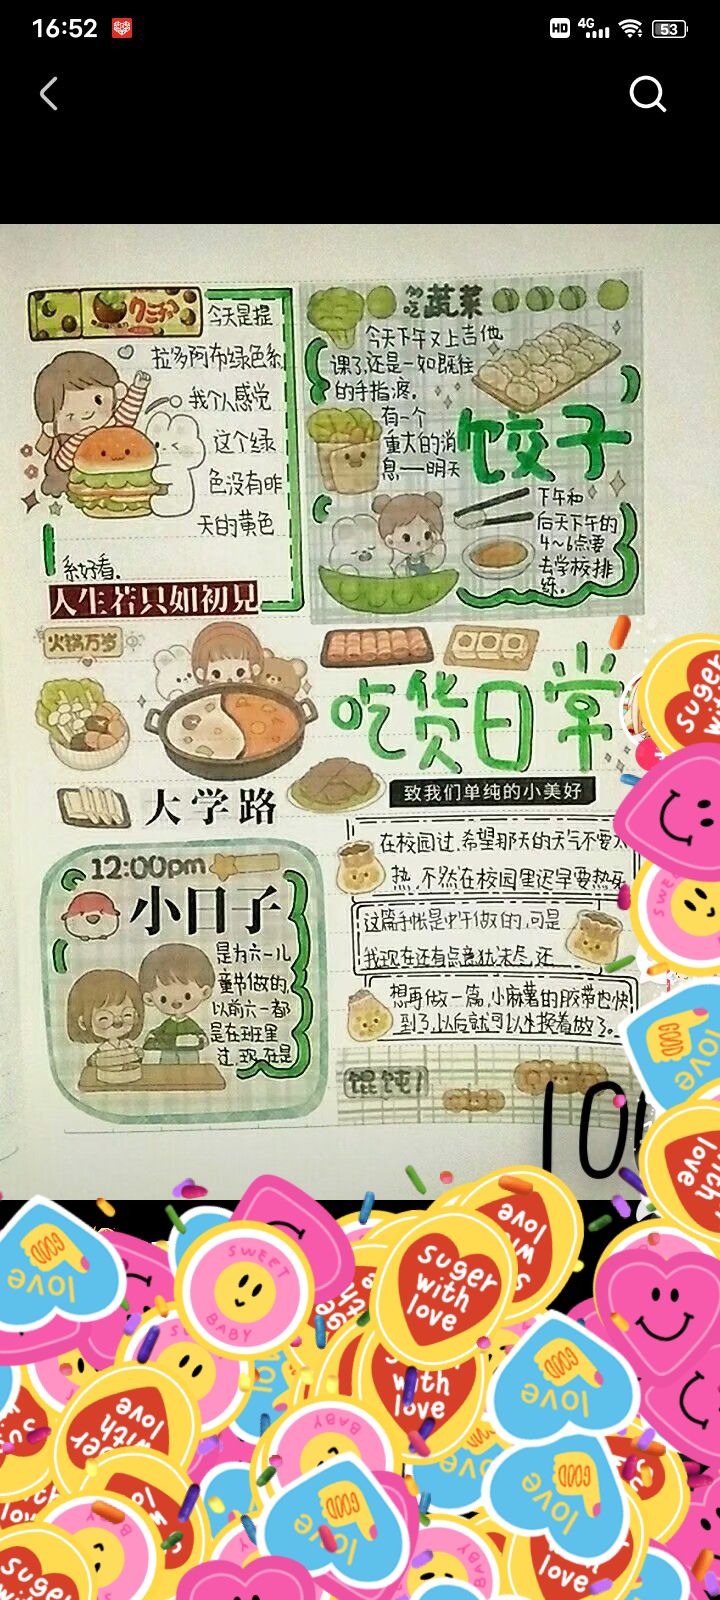 16:52
HD 4G 53
今天是提
拉多阿布绿色系
我个人感觉
这个绿
色没有昨
天的黄色
系好看.
人生若只如初见
多吃蔬菜
今天下午又上吉他
课了,还是一如既往
的手指疼.
有一个
重大的消
息——明天
饺子
下午和
后天下午的
4~6点要
去学校排
练.
火锅万岁
吃货日常
大学路
致我们单纯的小美好
12:00pm
小日子
是为六一儿
童节做的,
以前六一都
是在班里
过,现在是
在校园过,希望那天的天气不要
热,不然在校园里还早要热
这篇手帐是中午做的,可是
我现在还有点意犹未尽,还
想再做一篇,小麻薯的胶带也快
到了,以后就可以
换着做了。
馄饨!
10
Suger with
Suger with love
SWEET BABY
GOOD love
with love